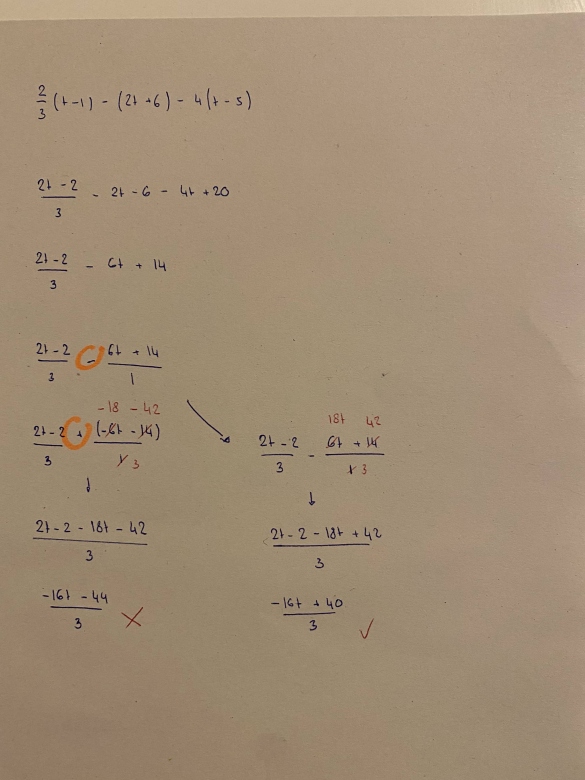 2/3 (t-1) - (2t+6) - 4(t-5)
2t-2/3 - 2t-6 - 4t+20
2t-2/3 - 6t + 14
2t-2/3 - 6t + 14/1
-18 - 42
2t-2/3 + (-6t - 14)/1 3
↓
2t-2-18t-42/3
-16t-44/3 ×
18t 42
2t-2/3 - 6t + 14/1 3
↓
2t-2-18t+42/3
-16t+40/3 ✓